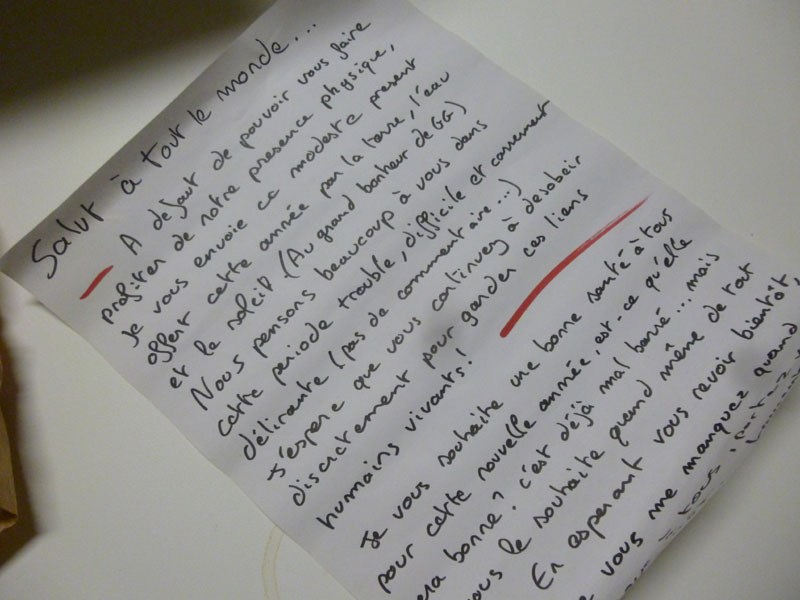 Salut à tout le monde...
A defaut de pouvoir vous faire
profiter de notre presence physique,
je vous envoie ce modeste present
offert cette année par la terre, l'eau
et le soleil (Au grand bonheur de GG)
Nous pensons beaucoup à vous dans
cette periode trouble, difficile et carrement
délirante (pas de commentaire...)
J'espere que vous continuez à desobeir
discretement pour garder ces liens
humains vivants!
Je vous souhaite une bonne santé à tous
pour cette nouvelle année, est-ce qu'elle
era bonne? c'est déjà mal barré... mais
ous le souhaite quand même de tout
En esperant vous revoir bientôt,
e vous me manquez quand